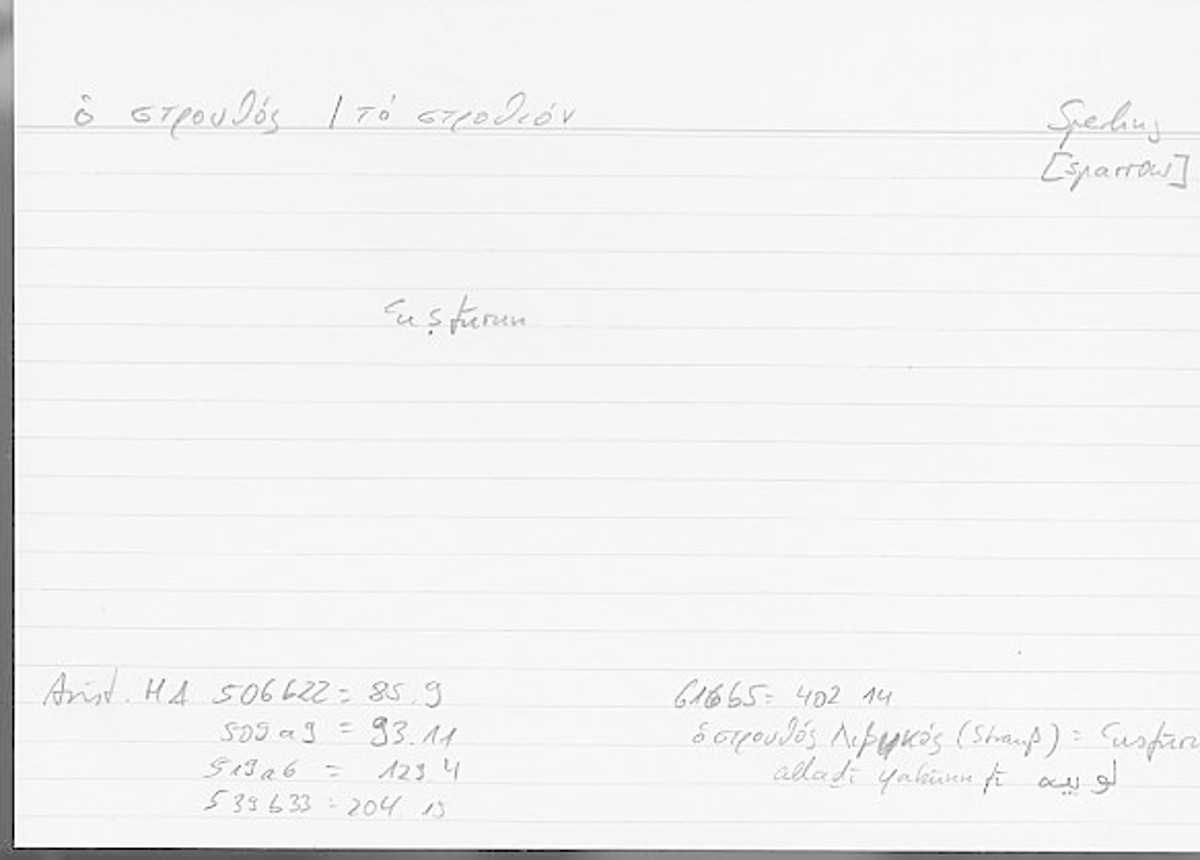 ὁ στρουθός / τό στροθιόν
Sperling
[sparrow]
ʿuṣfūrun
Arist. HA 506b22 = 85.9
509a9 = 93.11
519a6 = 123 4
539b33 = 204.15
616b5 = 402 14
ὁ στρουθός Λιβυκός (Strauß) = ʿuṣfūr
alladī yakūnu fī لوبيه